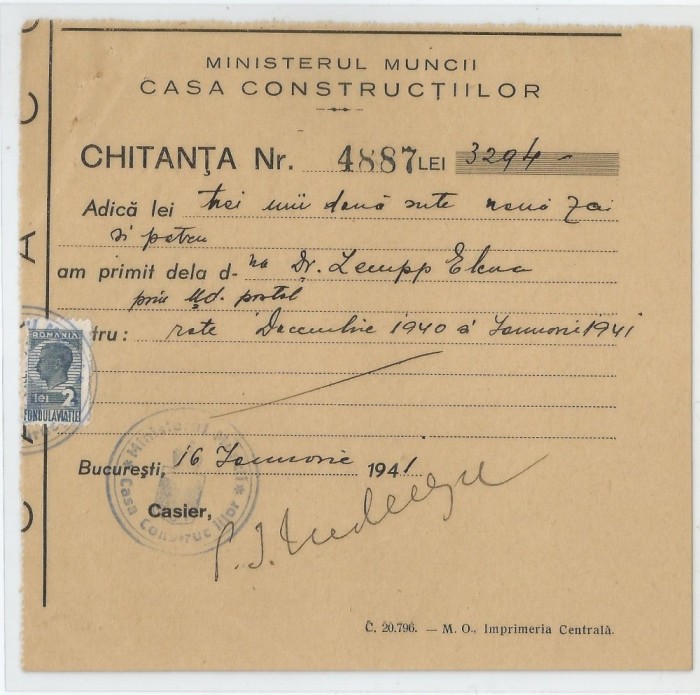 MINISTERUL MUNCII
CASA CONSTRUCȚIILOR
CHITANȚA Nr. 4887 LEI 3294 -
Adică lei trei mii două sute nouă zeci
si patru
am primit dela d-na Dr. Elena
prin Md. postal
tru: rate Decembrie 1940 si Ianuarie 1941
București, 16 Ianuarie 1941
Casier,
ROMANIA
lei 2
FONDUL AVIATIEI
Ministerul Muncii
* Casa Construcțiilor *
C. 20.796. — M. O., Imprimeria Centrală.